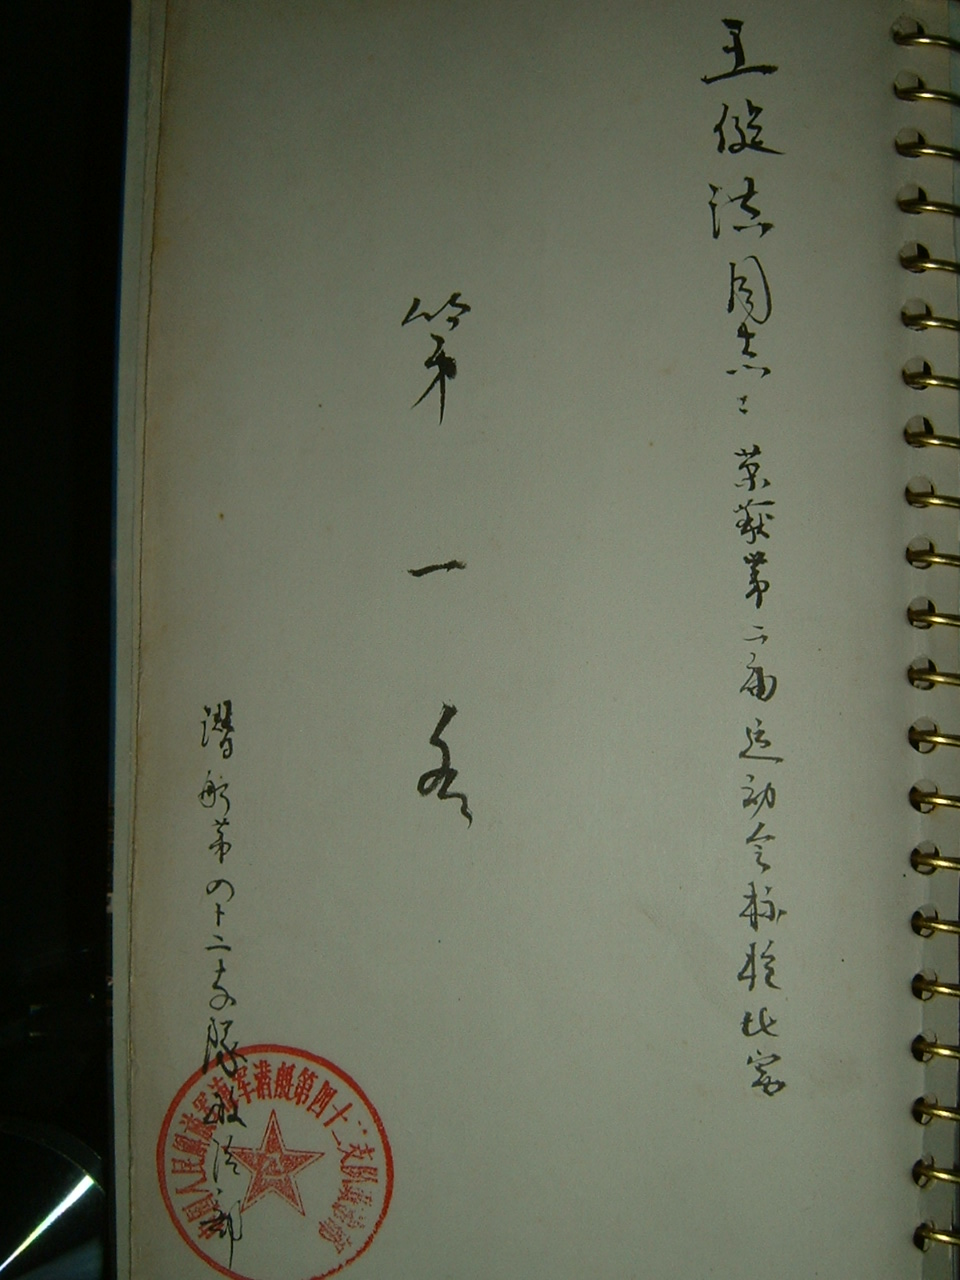 王俊洪同志：荣获第二届运动会标枪比赛
第一名
潜艇第四十二支隊政治部
中国人民解放军海军潜艇第四十二支队政治部